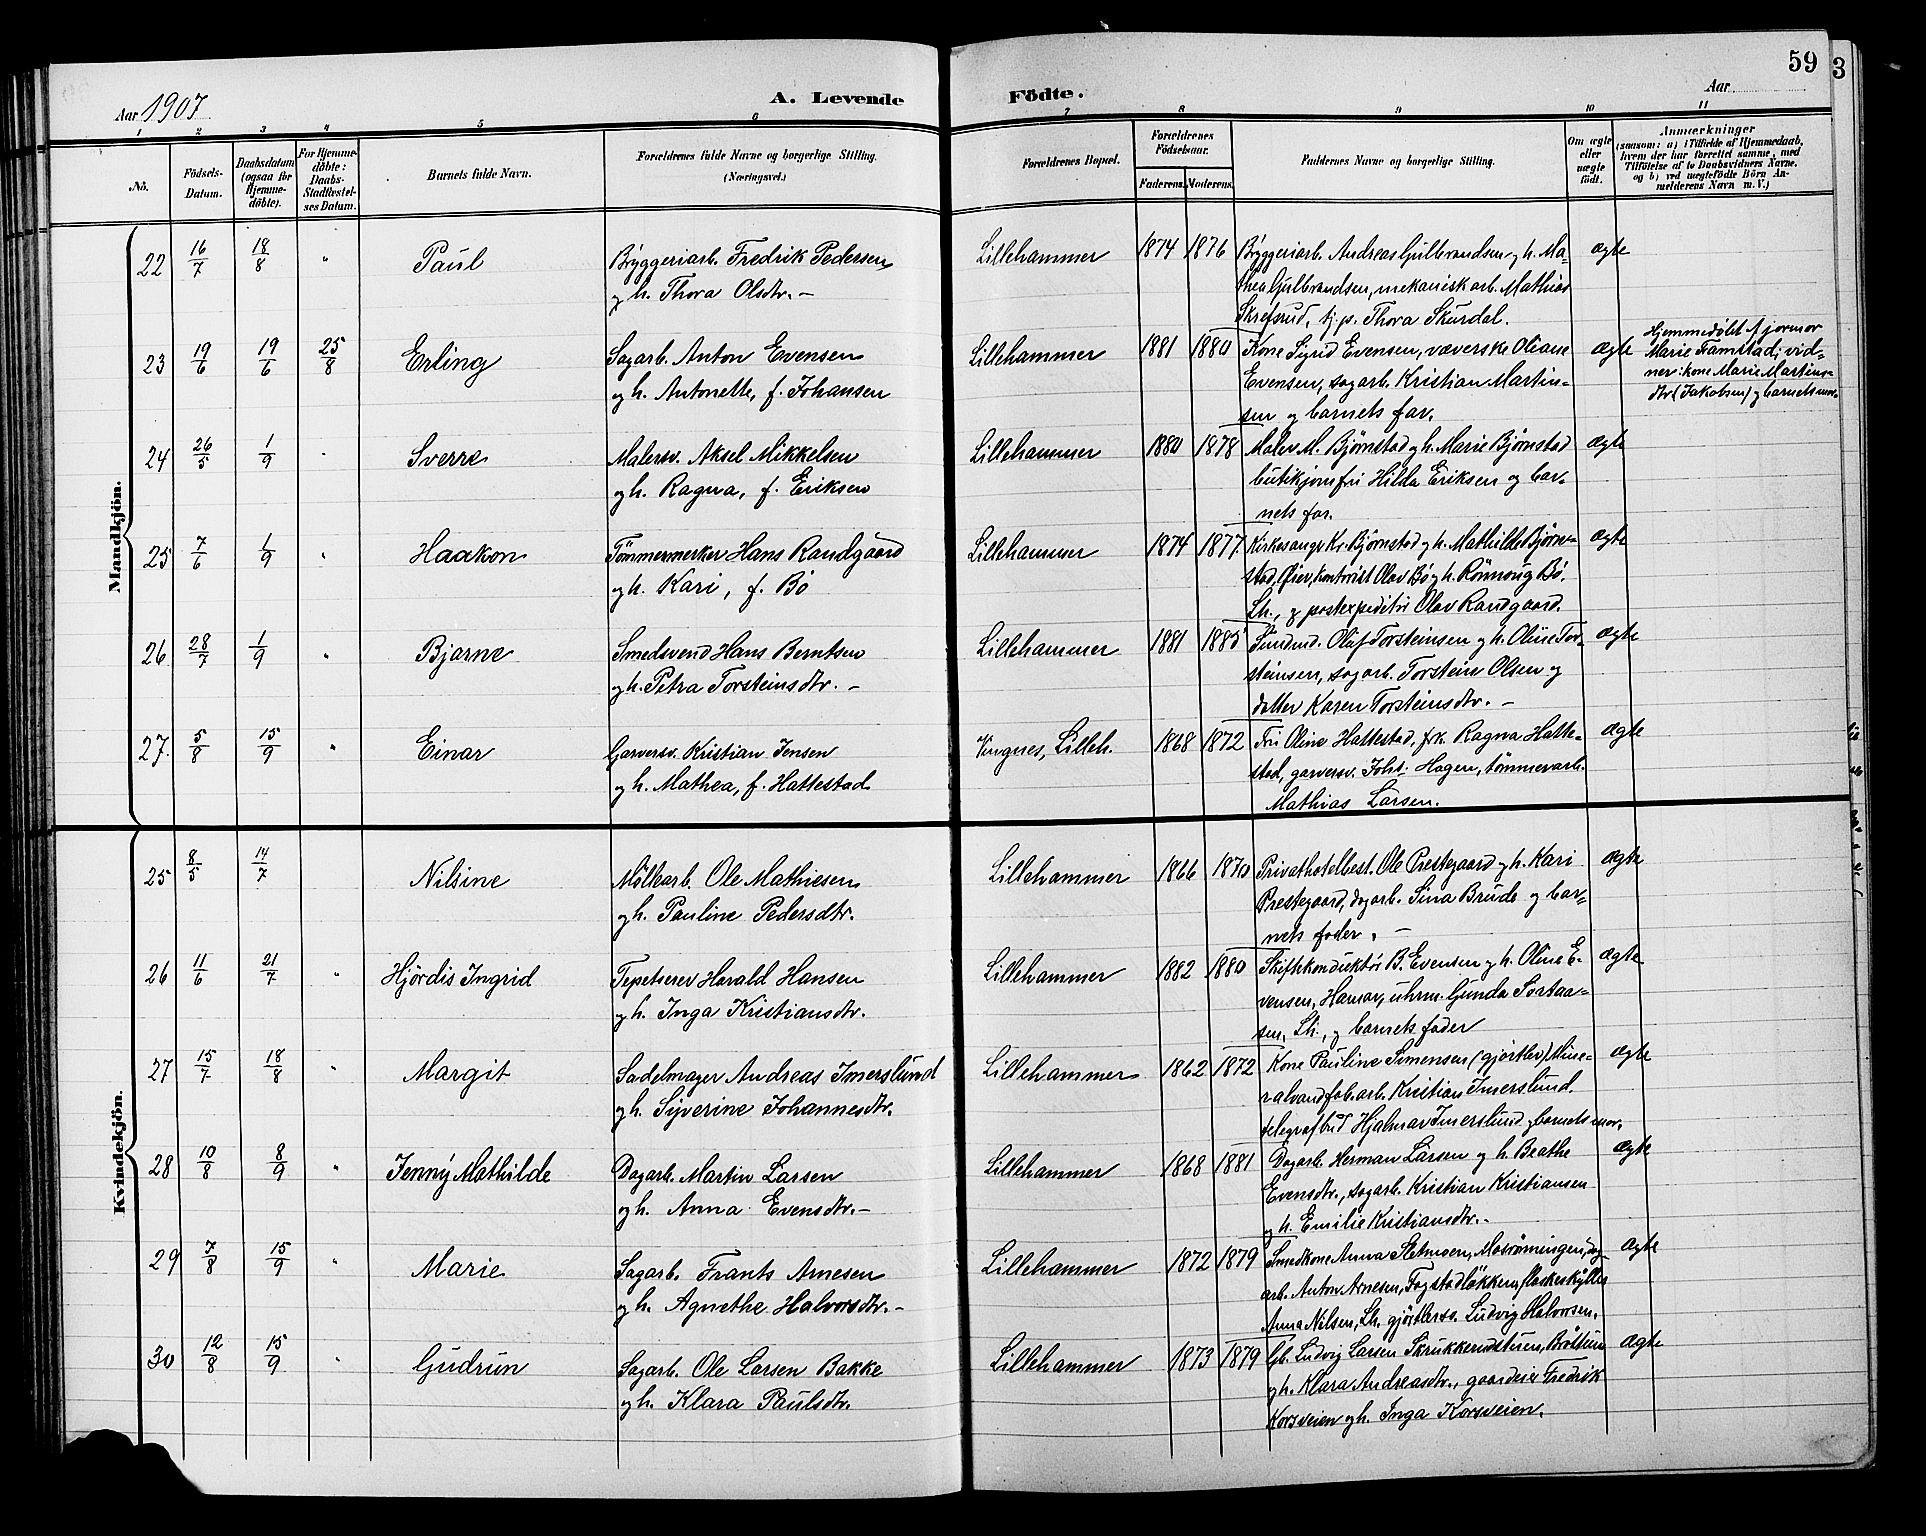 59
3
Aar 1907.
A. Levende Födte.
Aar
1 2 3 4 5 6 7 8 9 10 11
No.
Födsels-
Datum.
Daabsdatum
(ogsaa for
Hjemme-
döbte).
For Hjemme-
döbte:
Daabs-
Stadfæstel-
ses Datum.
Barnets fulde Navn.
Forældrenes fulde Navne og borgerlige Stilling.
(Næringsvei.)
Forældrenes Bopæl.
Forældrenes
Födselsaar.
Faderens. Moderens.
Faddernes Navne og borgerlige Stilling.
Om ægte
eller
uægte
født.
Anmærkninger
(saasom: a) i Tilfælde af Hjemmedaab,
hvem der har forrettet samme, med
Tilföielse af to Daabsvidners Navne,
og b) ved uægtefödte Börn An-
melderens Navn m. V.)
Mandkjön.
22 16/7 18/8 " Paul
Bryggeriarb. Fredrik Pedersen
og h. Thora Olsdtr. –
Lillehammer 1874 1876
Bryggeriarb. Andreas Gulbrandsen og h. Ma-
thea Gulbrandsen, mekanisk arb. Mathias
Skrefsrud, tj.p. Thora Skurdal.
ægte
23 19/6 19/6 25/8 Erling
Sagarb. Anton Evensen
og h. Antonette, f. Johansen
Lillehammer 1881 1880
Kone Sigrid Evensen, væverske Oliane
Evensen, sagarb. Kristian Martin-
sen og barnets far.
ægte
Hjemmedøbt af jormor
Marie Framstad; vid-
ner: kone Marie Martins-
dtr (Jakobsen) og barnets mor.
24 26/5 1/9 " Sverre
Malersv. Aksel Mikkelsen
og h. Ragna, f. Eriksen
Lillehammer 1880 1878
Maler M. Bjørnstad og h. Marie Bjørnstad
butikjomfru Hilda Eriksen og bar-
nets far.
ægte
25 7/6 1/9 " Haakon
Tømmermerker Hans Randgaard
og h. Kari, f. Bø
Lillehammer 1874 1877.
Kirkesanger Kr. Bjørnstad og h. Mathilde Bjørn-
stad, Øier, kontorist Olav Bø og h. Rönnoug Bø.
Lh., og postexpeditør Olav Randgaard.
ægte
26 28/7 1/9 " Bjarne
Smedsvend Hans Berntsen
og h. Petra Torsteinsdtr. –
Lillehammer 1881 1885
Olaf Torsteinsen og h. Oline Tor-
steinsen, sagarb. Torstein Olsen og
datter Karen Torsteinsdtr. –
ægte
27. 5/8 15/9 " Einar
Garversv. Kristian Jensen
og h. Mathea, f. Hattestad
Vingnes, Lilleh. 1868 1872
Fru Oline Hattestad, frk. Ragna Hatte-
stad, garversv. Johs. Hagen, tømmerarb.
Mathias Larsen.
ægte
Kvindekjön.
25 8/5 14/7 Nilsine
Møllearb. Ole Mathiesen
og h. Pauline Pedersdtr.
Lillehammer 1866 1870
Privathotelbest. Ole Prestegaard og h. Kari
Prestegaard, dagarb. Sina Brude og bar-
nets fader. –
ægte
26 11/6 21/7 " Hjördis Ingrid
Tepetserer Harald Hansen
og h. Inga Kristiansdtr.
Lillehammer 1882 1880
Skiftekonduktør B. Evensen og h. Oline E-
vensen, Hamar, uhrm. Gunda
sen, Lh., og barnets fader
ægte
27 15/7 18/8 " Margit
Sadelmager Andreas Imerslund
og h. Syverine Johannesdtr.
Lillehammer 1862 1872
Kone Pauline Simensen (gjørtler) Mine-
ralvandfab.arb. Kristian Imerslund.
telegrafbud Hjalmar Imerslund og barnets mor.
ægte
28 10/8 8/9 " Jenny Mathilde
Dagarb. Martin Larsen
og h. Anna Evensdtr. –
Lillehammer 1868 1881
Dagarb. Herman Larsen og h. Beathe
Evensdtr., sagarb. Kristian Kristiansen
og h. Emilie Kristiansdtr. –
ægte
29 7/8 15/9 " Marie
Sagarb. Frants Arnesen
og h. Agnethe Halvorsdtr. –
Lillehammer 1872 1879
Smedkone Anna Sletmoen, Mosrømingen, dag-
arb. Anton Arnesen, Fagstadløkken, flaskeskyller
Anna Nilsen, Lh. gjörtlersv. Ludvig Halvorsen.
ægte
30 12/8 15/9 " Gudrun
Sagarb. Ole Larsen Bakke
og h. Klara Paulsdtr.
Lillehammer 1873 1879
Gb. Ludvig Larsen Skrukkerudstuen, Brøttum
og h. Klara Andreasdtr., gaardeier Fredrik
Korsveien og h. Inga Korsveien.
ægte